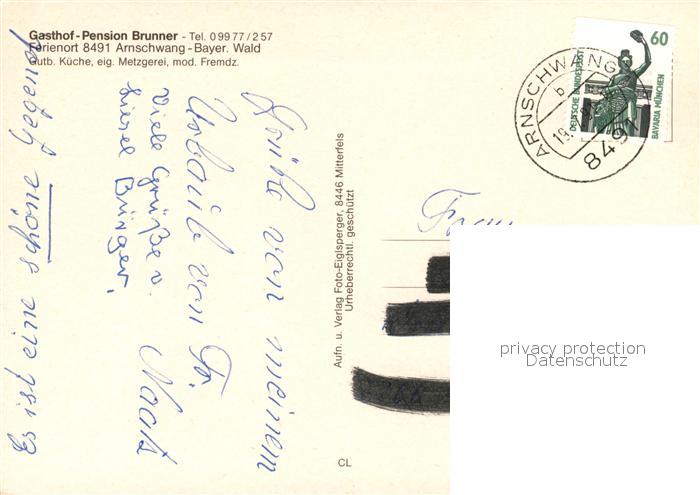 Gasthof-Pension Brunner - Tel. 09977/257
Ferienort 8491 Arnschwang - Bayer. Wald
Gutb. Küche, eig. Metzgerei, mod. Fremdz.
Grüße von meinem
Urlaub von Fr.
Noack
Viele Grüße v.
Liesel Bürger.
Es ist eine schöne Gegend
Aufn. u. Verlag Foto-Eiglsperger, 8446 Mitterfels
Urheberrechtl. geschützt
CL
60
DEUTSCHE BUNDESPOST
BAVARIA MÜNCHEN
ARNSCHWANG
b
19.
8491
Frau
privacy protection
Datenschutz